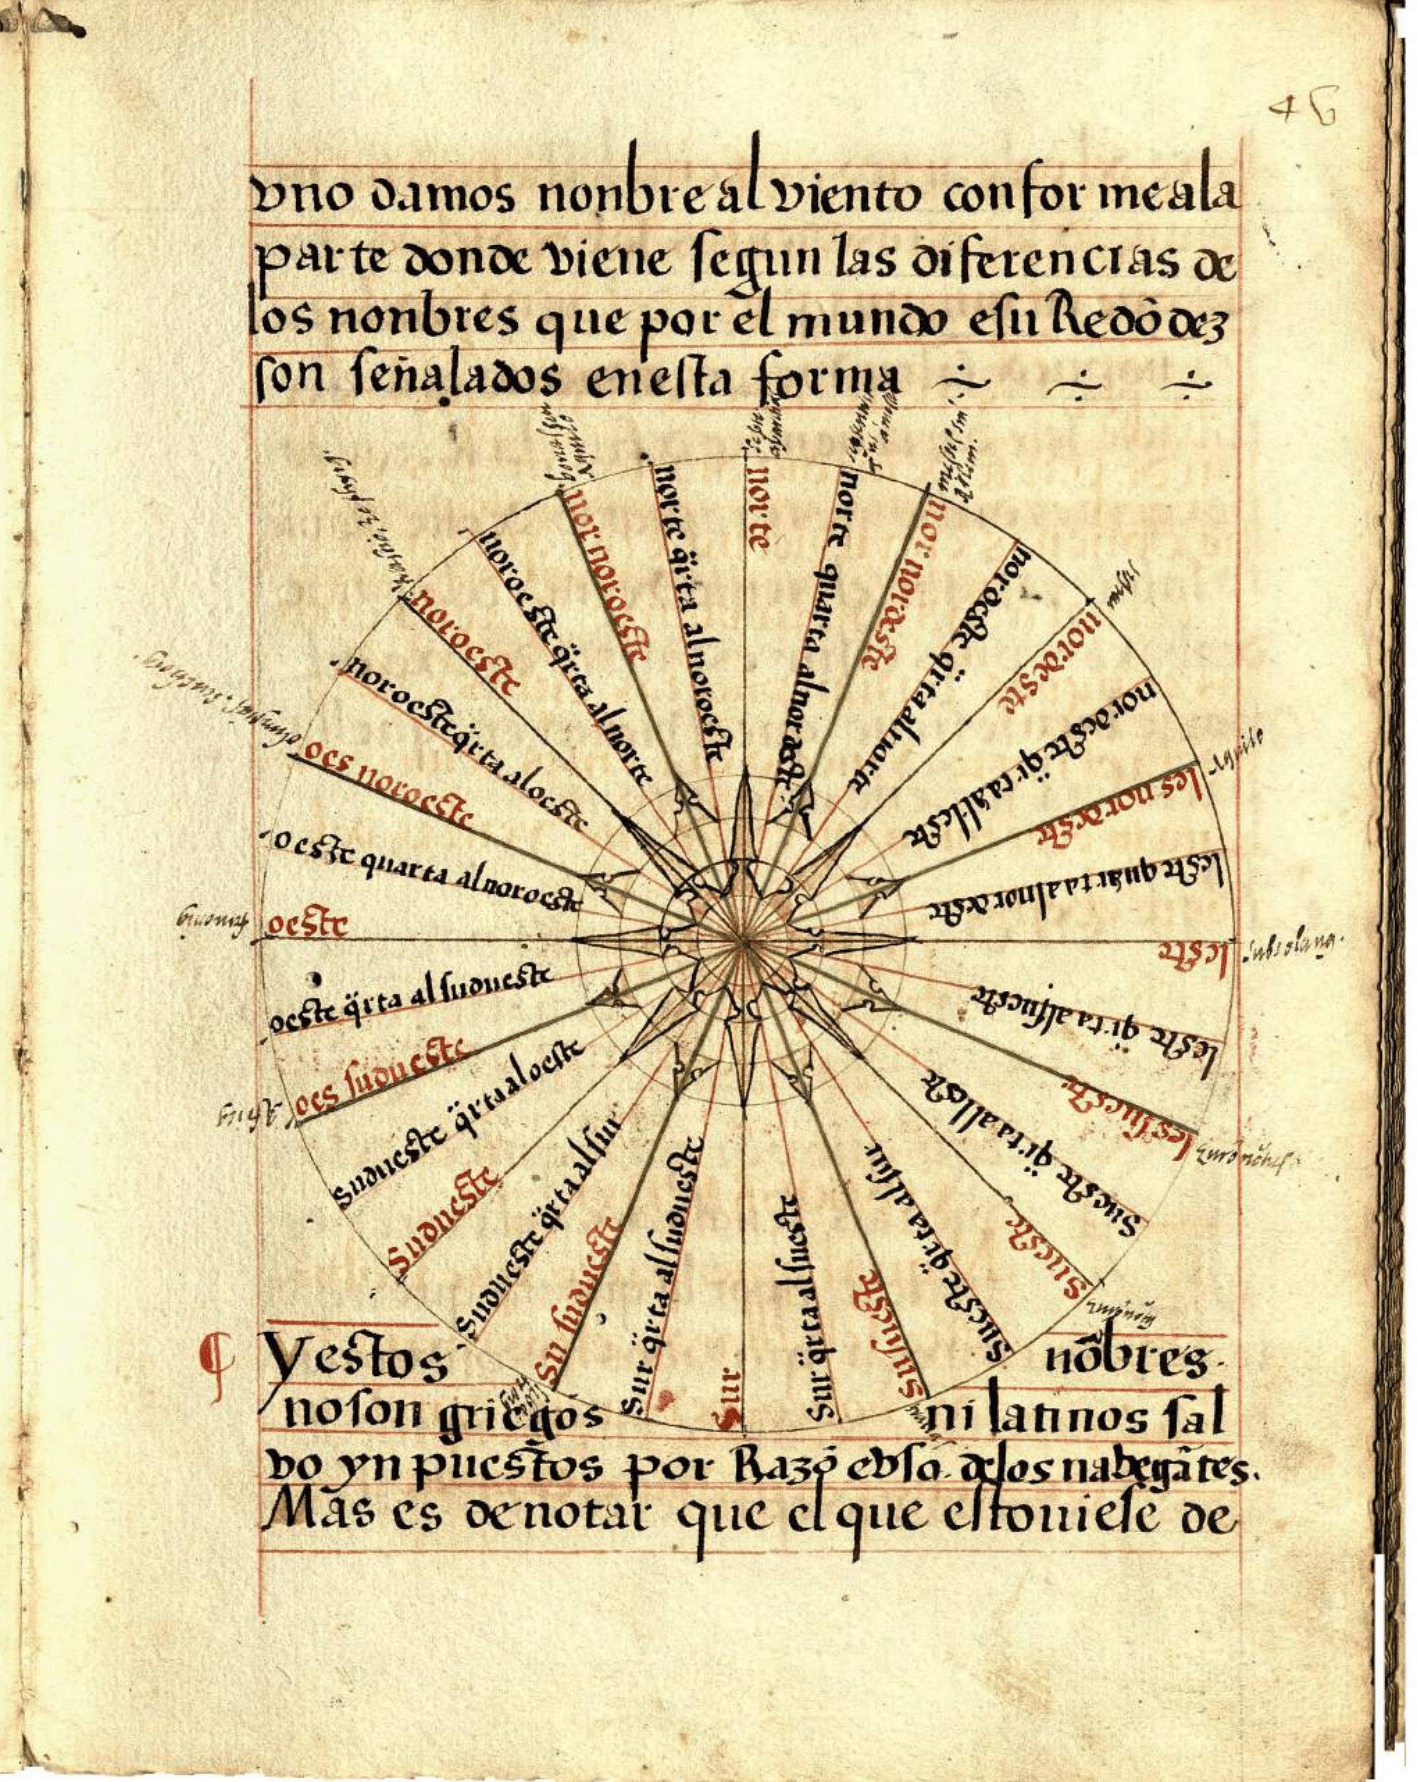 46
vno damos nonbre al viento conforme ala
parte donde viene segun las diferencias de
los nonbres que por el mundo esu Redõdez
son señalados enesta forma
norte
norte quarta alnordeste
nor nordeste
nordeste qrta alnorte
nordeste
nordeste qrta alleste
les nordeste
leste quarta alnordeste
leste
leste qrta alsueste
les sueste
sueste qrta alleste
sueste
sueste qrta alsur
su sueste
sur qrta alsueste
sur
sur qrta alsudueste
su sudueste
sudueste qrta alsur
sudueste
sudueste qrta aloeste
oes sudueste
oeste qrta alsudueste
oeste
oeste quarta alnoroeste
oes noroeste
noroeste qrta aloeste
noroeste
noroeste qrta alnorte
nor noroeste
norte qrta alnoroeste
Aquilo
subsolanꝰ
yestos nõbres
noson griegos ni latinos sal
vo ynpuestos por Razõ evso delos nabegãtes.
Mas es denotar que el que estouiese de